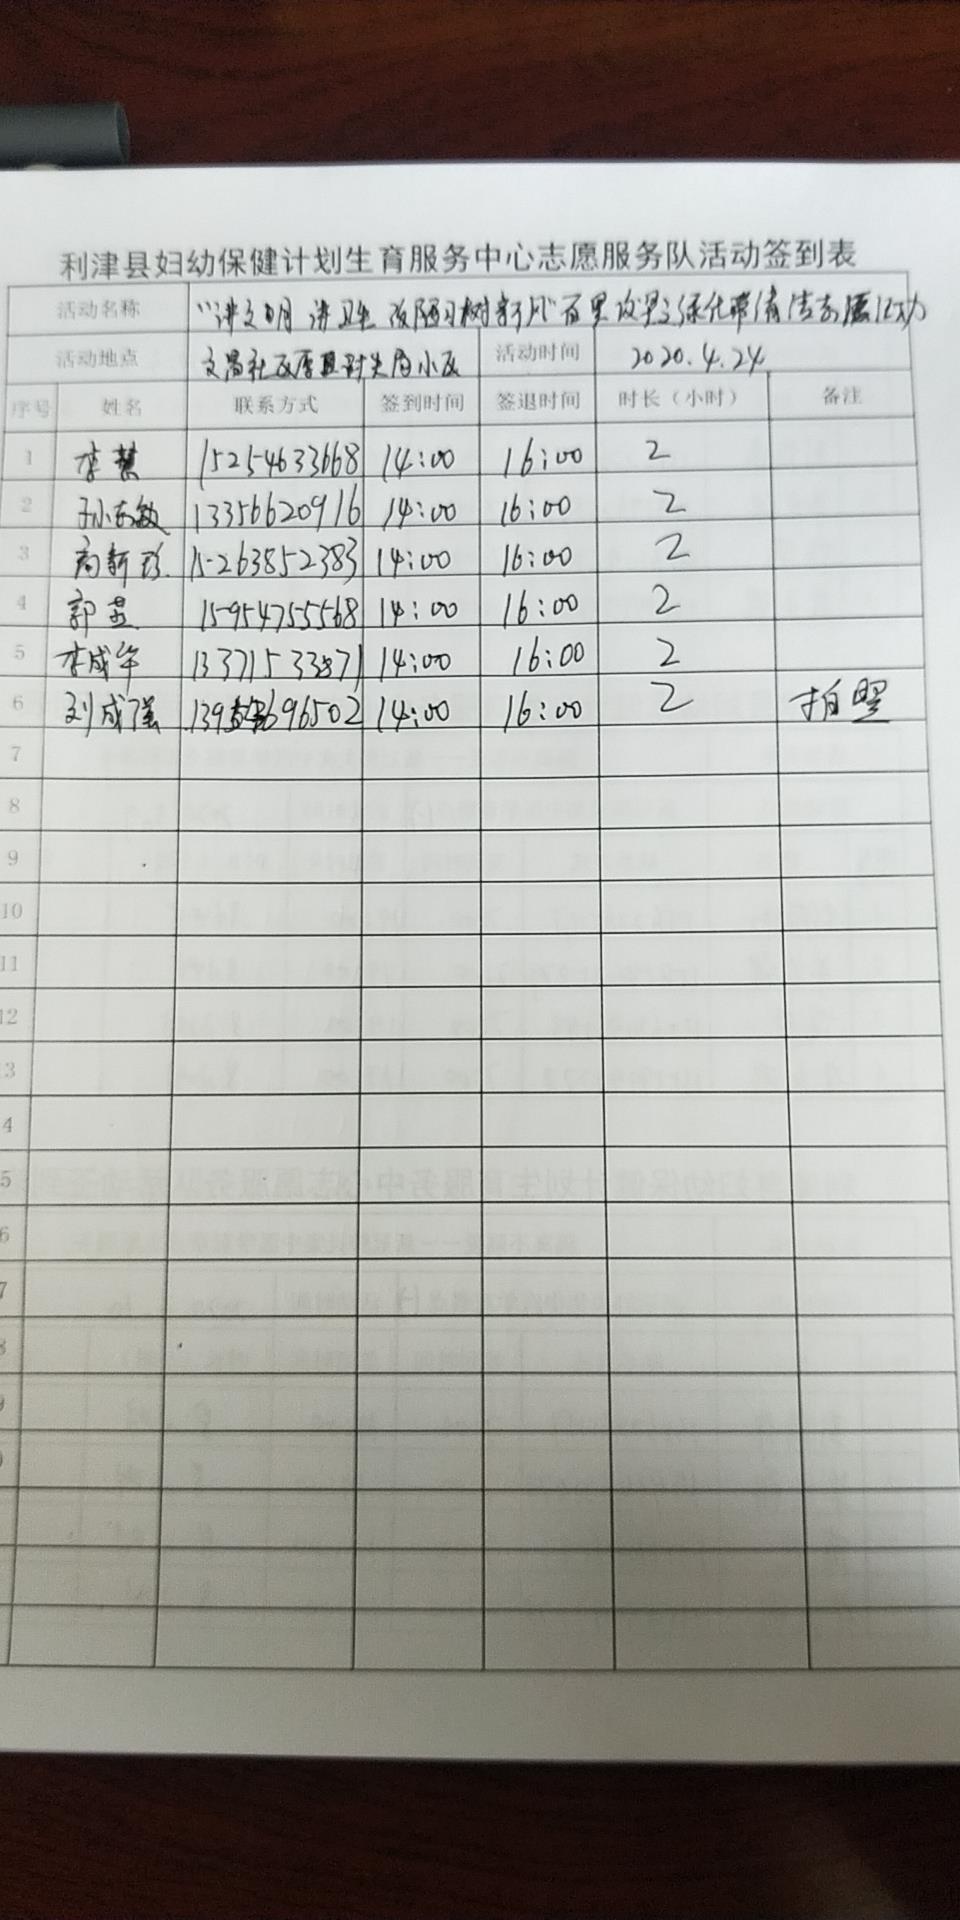 利津县妇幼保健计划生育服务中心志愿服务队活动签到表
活动名称 "讲文明 讲卫生 改陋习 树新风" 绿化带清洁志愿活动
活动地点 文昌社区 小区 活动时间 2020.4.24
序号 姓名 联系方式 签到时间 签退时间 时长（小时） 备注
1 李慧 15254633668 14:00 16:00 2
2 孙志敏 13356620916 14:00 16:00 2
3 高新珍 15263852383 14:00 16:00 2
4 郭燕 15954755568 14:00 16:00 2
5 李成华 14:00 16:00 2
6 刘成强 14:00 16:00 2 拍照
7
8
9
10
11
12
3
4
5
6
7
8
9
0